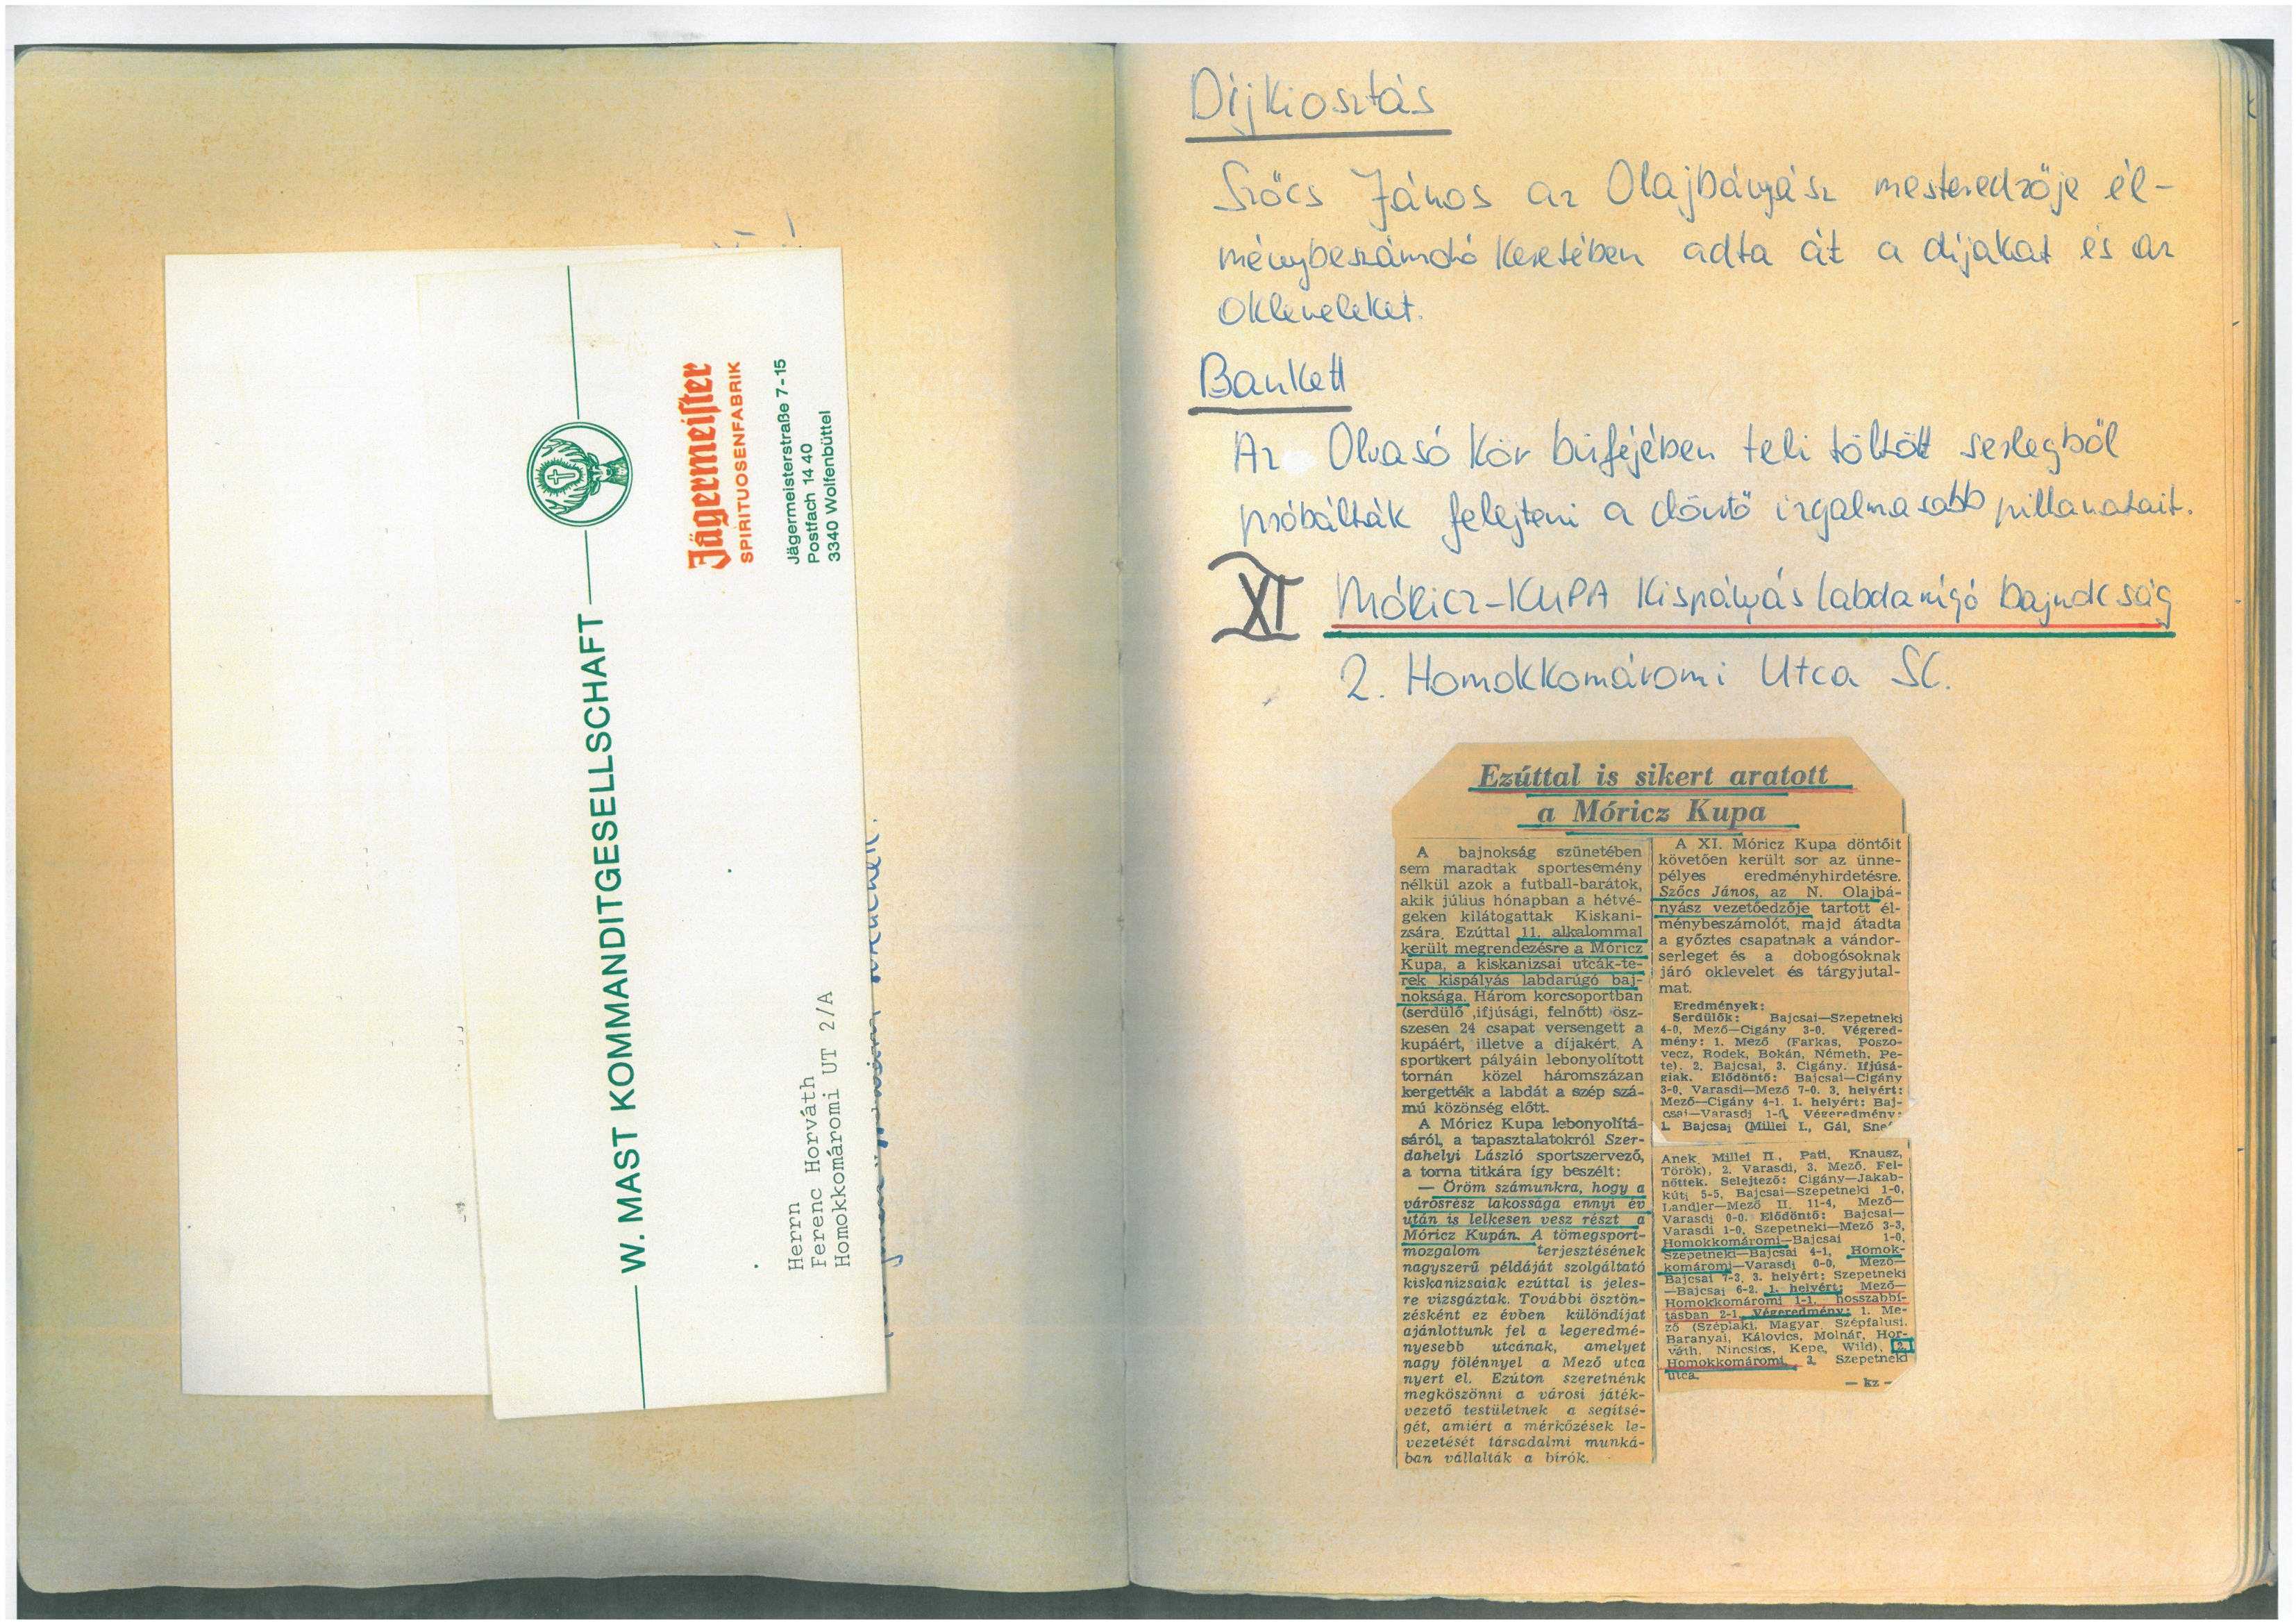 W. MAST KOMMANDITGESELLSCHAFT
Jägermeister
SPIRITUOSENFABRIK
Jägermeisterstraße 7-15
Postfach 14 40
3340 Wolfenbüttel
Herrn
Ferenc Horváth
Homokkomáromi UT 2/A
Díjkiosztás
Szőcs János az Olajbányász mesteredzője él-
ménybeszámoló keretében adta át a díjakat és az
okleveleket.
Bankett
Az Olvasó Kör büféjében teli töltött serlegből
próbálták felejteni a döntő izgalmasabb pillanatait.
XI MÓRICZ-KUPA Kispályás labdarúgó bajnokság
2. Homokkomáromi Utca SC.
Ezúttal is sikert aratott
a Móricz Kupa
A bajnokság szünetében
sem maradtak sportesemény
nélkül azok a futball-barátok,
akik július hónapban a hétvé-
geken kilátogattak Kiskani-
zsára. Ezúttal 11. alkalommal
került megrendezésre a Móricz
Kupa, a kiskanizsai utcák-te-
rek kispályás labdarúgó baj-
noksága. Három korcsoportban
(serdülő ,ifjúsági, felnőtt) ösz-
szesen 24 csapat versengett a
kupáért, illetve a díjakért. A
sportkert pályáin lebonyolított
tornán közel háromszázan
kergették a labdát a szép szá-
mú közönség előtt.
A Móricz Kupa lebonyolítá-
sáról, a tapasztalatokról Szer-
dahelyi László sportszervező,
a torna titkára így beszélt:
— Öröm számunkra, hogy a
városrész lakossága ennyi év
után is lelkesen vesz részt a
Móricz Kupán. A tömegsport-
mozgalom terjesztésének
nagyszerű példáját szolgáltató
kiskanizsaiak ezúttal is jeles-
re vizsgáztak. További ösztön-
zésként ez évben különdíjat
ajánlottunk fel a legeredmé-
nyesebb utcának, amelyet
nagy fölénnyel a Mező utca
nyert el. Ezúton szeretnénk
megköszönni a városi játék-
vezető testületnek a segítsé-
gét, amiért a mérkőzések le-
vezetését társadalmi munká-
ban vállalták a bírók.
A XI. Móricz Kupa döntőit
követően került sor az ünne-
pélyes eredményhirdetésre.
Szőcs János, az N. Olajbá-
nyász vezetőedzője tartott él-
ménybeszámolót, majd átadta
a győztes csapatnak a vándor-
serleget és a dobogósoknak
járó oklevelet és tárgyjutal-
mat.
Eredmények:
Serdülők: Bajcsai—Szepetneki
4-0, Mező—Cigány 3-0. Végered-
mény: 1. Mező (Farkas, Poszo-
vecz, Rodek, Bokán, Németh, Pe-
te), 2. Bajcsai, 3. Cigány. Ifjúsá-
giak. Elődöntő: Bajcsai—Cigány
3-0, Varasdi—Mező 7-0. 3. helyért:
Mező—Cigány 4-1. 1. helyért: Baj-
csai—Varasdi 1-0. Végeredmény:
1. Bajcsai (Millei I., Gál,
Anek, Millei II., Pati, Knausz,
Török), 2. Varasdi, 3. Mező. Fel-
nőttek. Selejtező: Cigány—Jakab-
kúti 5-5, Bajcsai—Szepetneki 1-0,
Landler—Mező II. 11-4, Mező—
Varasdi 0-0. Elődöntő: Bajcsai—
Varasdi 1-0, Szepetneki—Mező 3-3,
Homokkomáromi—Bajcsai 1-0,
Szepetneki—Bajcsai 4-1, Homok-
komáromi—Varasdi 0-0, Mező—
Bajcsai 7-3. 3. helyért: Szepetneki
—Bajcsai 6-2. 1. helyért: Mező—
Homokkomáromi 1-1, hosszabbí-
tásban 2-1. Végeredmény: 1. Me-
ző (Széplaki, Magyar, Szépfalusi,
Baranyai, Kálovics, Molnár, Hor-
váth, Nincsics, Kepe, Wild), 2.
Homokkomáromi, 3. Szepetneki
utca.
— kz —